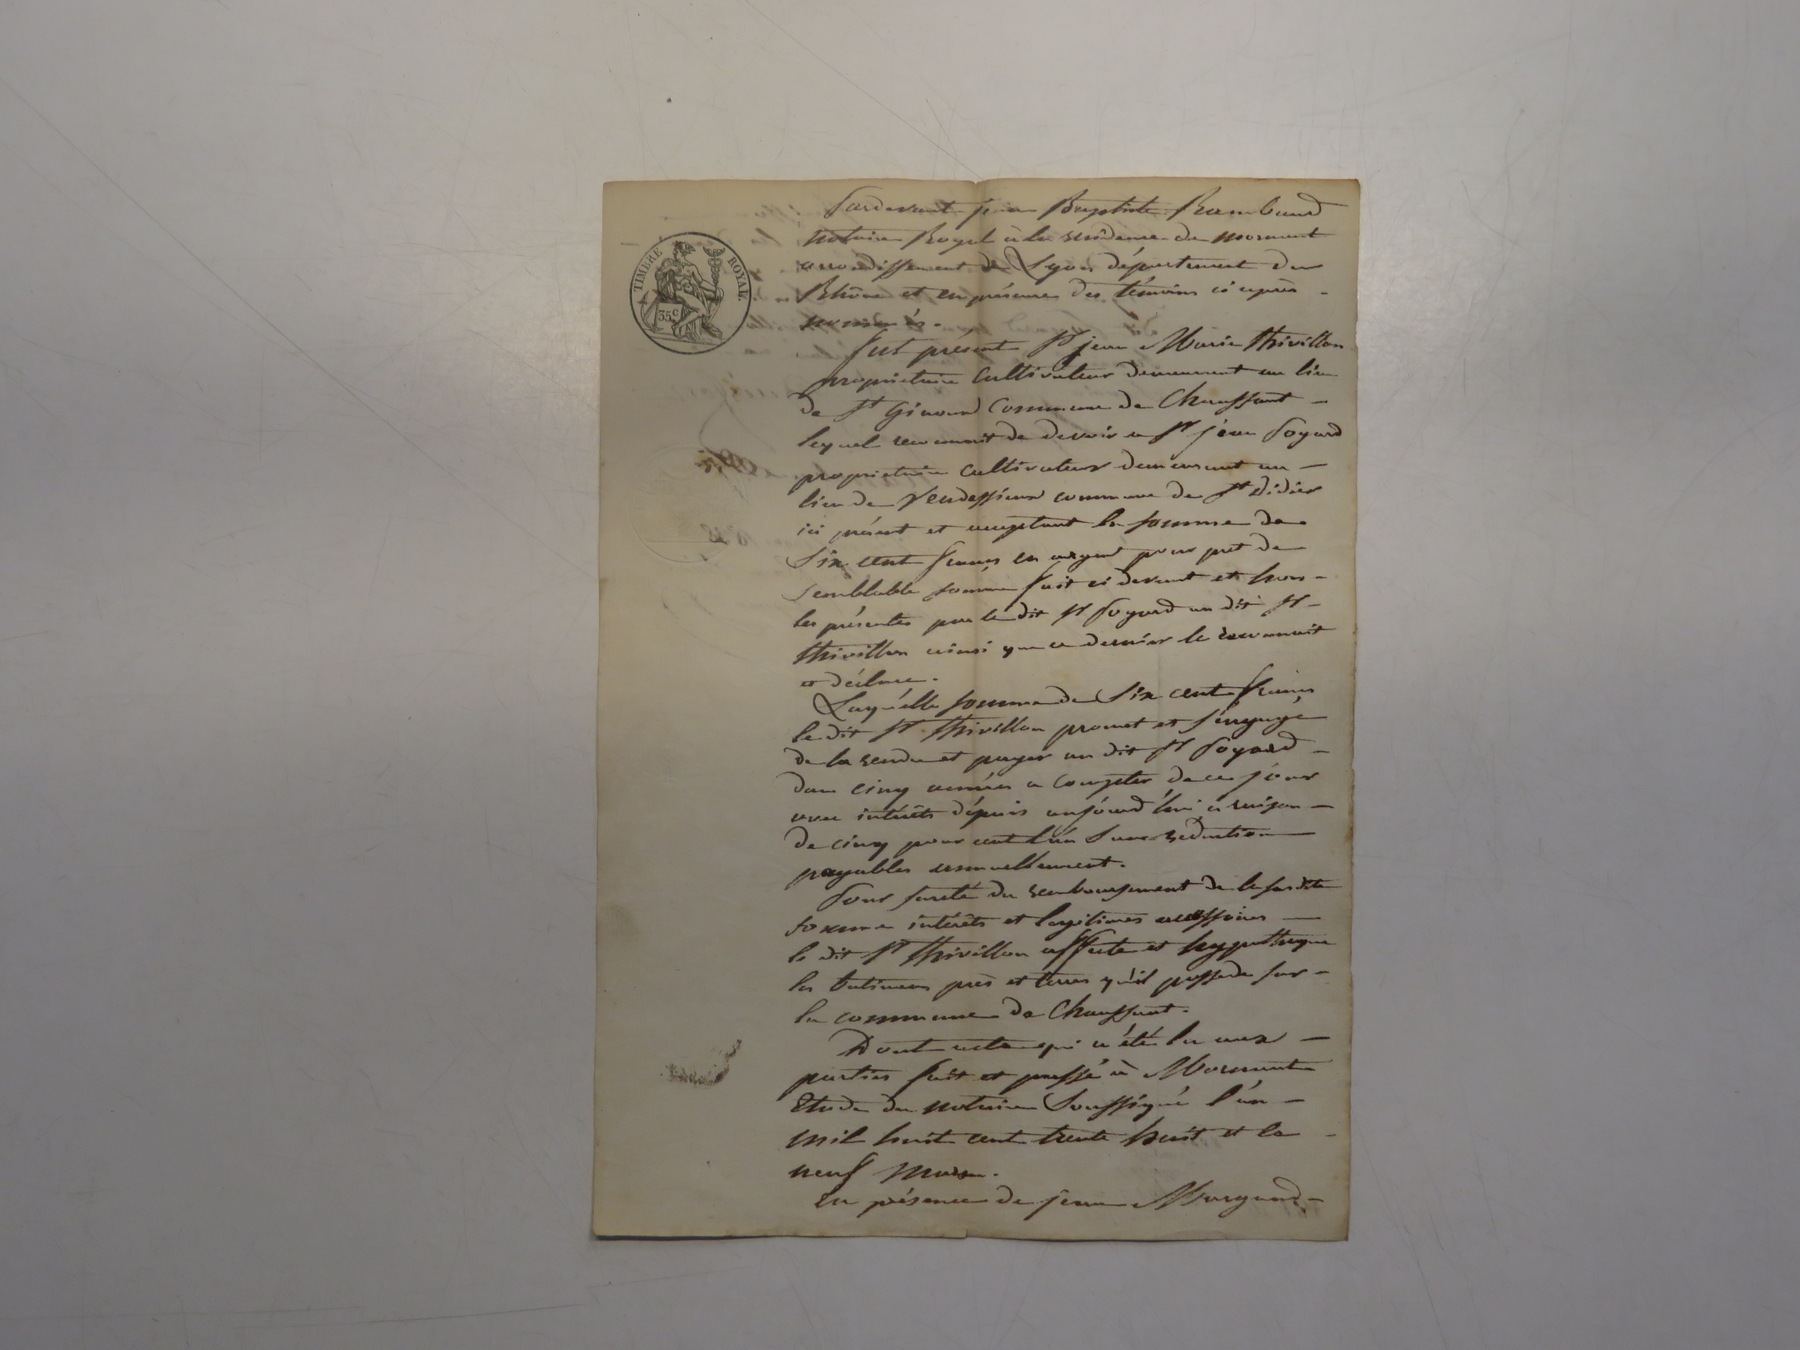 TIMBRE ROYAL.
35c
Pardevant jean Baptiste Rambaud
notaire Royal à la residence de mornant
arrondissement de Lyon département du
Rhône et en présence des témoins ci après
nommés.
fut présent Sr jean Marie thivillon
proprietaire cultivateur demeurant au lieu
de St Giraud Commune de Chaussant
lequel reconnait de devoir a Sr jean Poyard
proprietaire cultivateur demeurant au
lieu de commune de St Didier
ici présent et acceptant la somme de
Six cent francs en argent pour pret de
semblable somme fait ci devant et hors
les présentes par le dit Sr Poyard au dit Sr
thivillon ainsi que ce dernier le reconnait
et déclare.
Laquélle somme de Six cent francs
le dit Sr thivillon promet et s'éngage
de la rendre et payer au dit Sr Poyard
dans cinq années a compter de ce jour
avec intérêts dépuis aujourd'hui a raison
de cinq pour cent l'an Sans reduction
payables annuellement.
Pour sureté du remboursement de la susdite
somme intérêts et légitimes accessoires
le dit Sr thivillon affecte et hypothéque
les batimens prés et terres qu'il possede sur
la commune de Chaussant.
Dont acte qui a été lu aux
parties fait et passé à Mornant
Etude du notaire Soussigné l'an
mil huit cent trente huit et le
neuf mars.
En présence de jean